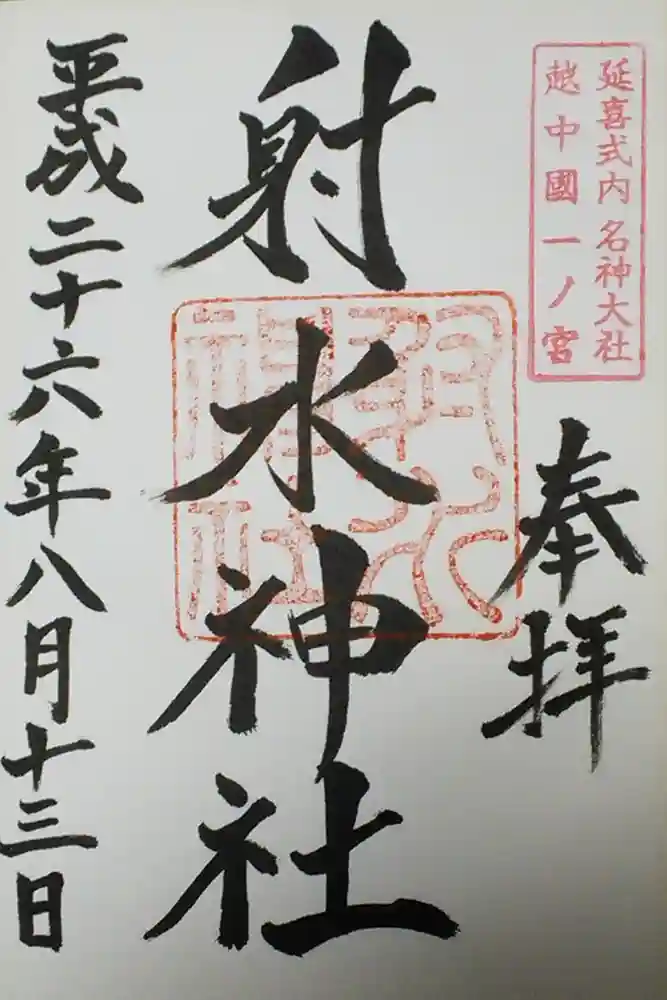 延喜式内名神大社
越中國一ノ宮
奉拝
射水神社
射水神社
平成二十六年八月十三日